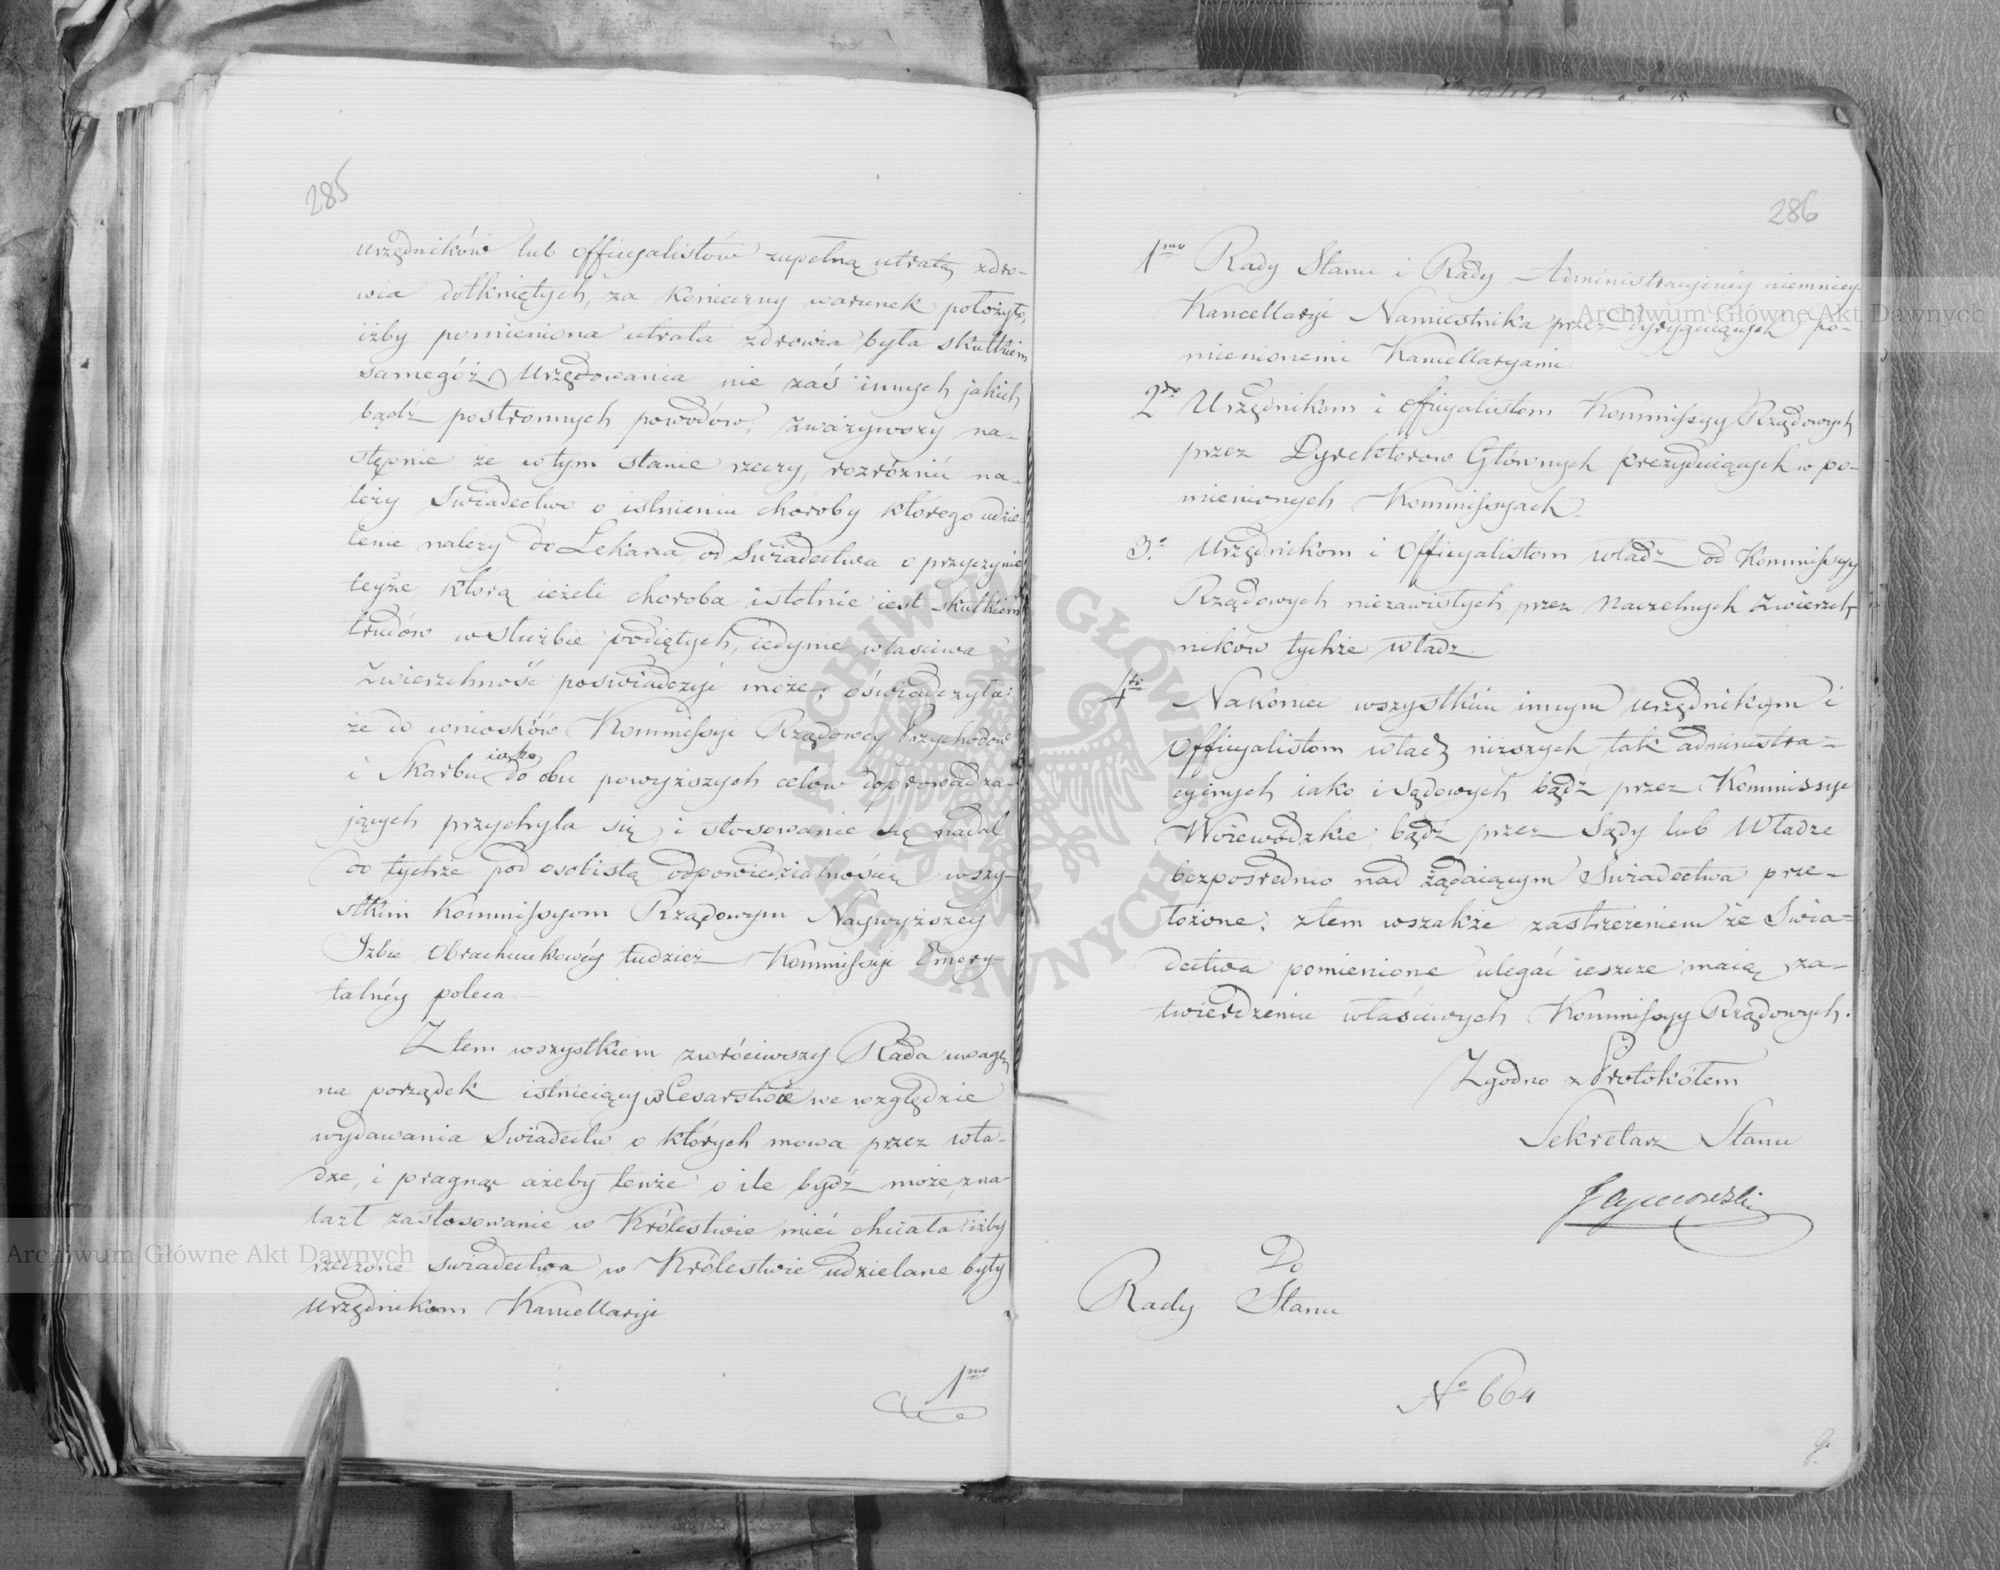 285
urzędników lub officyalistów zupełną utratą zdro-
wia dotkniętych, za konieczny warunek położyło,
iżby pomieniona utrata zdrowia była skutkiem
samegóż urzędowania nie zaś innych jakich
bądź postronnych powodów; zważywszy na-
stępnie że w tym stanie rzeczy, rozróżnić na-
leży świadectwo o istnieniu choroby którego udzie
lenie należy do Lekarza od świadectwa o przyczynie
teyże którą ieżeli choroba istotnie iest skutkiem
trudów w służbie podiętych, iedynie właściwa
Zwierzchność poświadczyć może; oświadczyła:
że do wniosków Kommissyi Rządowéy Przychodów
i Skarbu iako do obu powyższych celów doprowadza-
jących przychyla się, i stosowanie się nadal
do tychże pod osobistą odpowiedzialnością wszy-
stkim Kommissyom Rządowym Naywyższéy
Izbie Obrachunkowéy tudzież Kommissyi Emery-
talnéy poleca.
Z tem wszystkiem zwróciwszy Rada uwagę
na porządek istnieiący w Cesarstwie we względzie
wydawania Świadectw o których mowa przez wła-
dze, i pragnąc ażeby tenże o ile bydź może, zna-
lazł zastosowanie w Królestwie mieć chciała: iżby
rzeczone świadectwa w Królestwie udzielane były
urzędnikom Kancellaryi
1mo
286
1mo Rady Stanu i Rady Administracyinéy niemniéy
Kancellaryi Namiestnika przez dyryguiących po-
mienionemi Kancellaryami
2do Urzędnikom i officyalistom Kommissyy Rządowych
przez Dyrektorów Głównych prezyduiących w po-
mienionych Kommissyach.
3o Urzędnikom i Officyalistom władz od Kommissyy
Rządowych niezawisłych, przez Naczelnych Zwierzch-
ników tychże władz.
4to Nakoniec wszystkim innym urzędnikom i
Officyalistom władz niższych tak administra-
cyinych iako i Sądowych bądź przez Kommissye
Woiewódzkie, bądź przez Sądy lub Władze
bezpośrednio nad żądaiącym Świadectwa prze-
łożone; z tem wszakże zastrzeżeniem że Świa-
dectwa pomienione ulegać ieszcze maią za-
twierdzeniu właściwych Kommissyy Rządowych.
Zgodno z Protokółem
Sekretarz Stanu
Do
Rady Stanu
No 664
Archiwum Główne Akt Dawnych
Archiwum Główne Akt Dawnych
ARCHIWUM GŁÓWNE AKT DAWNYCH